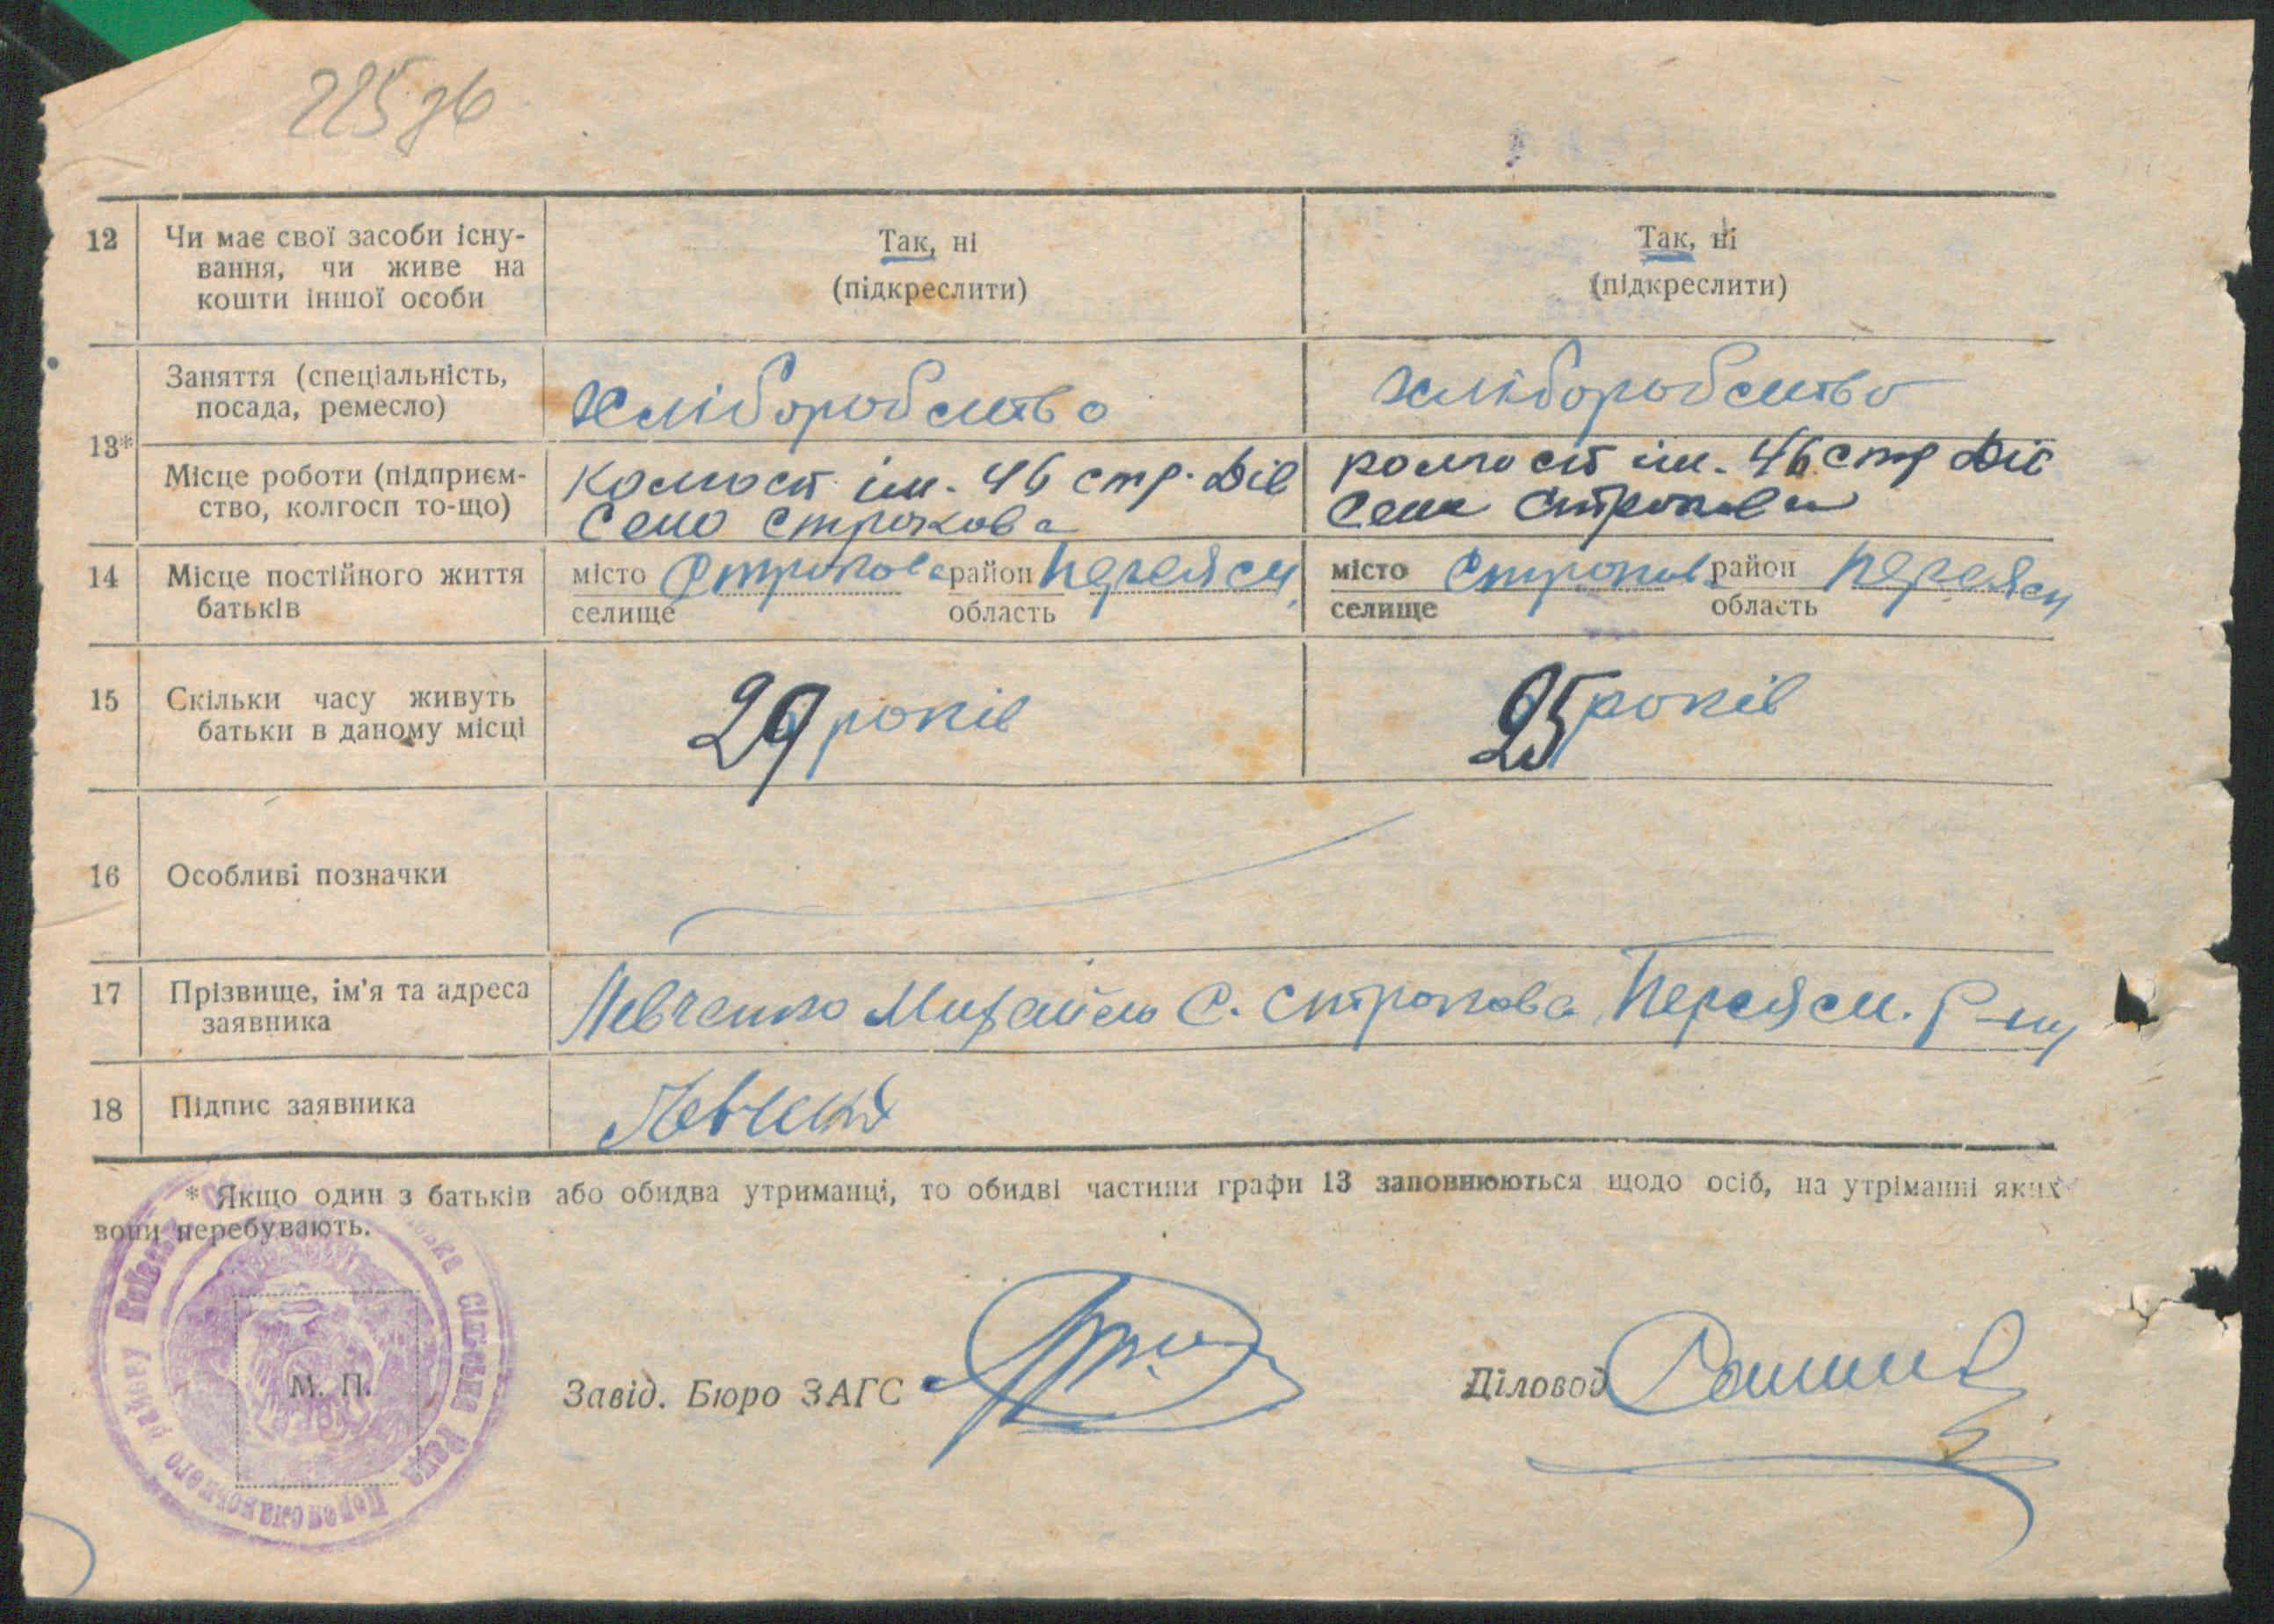 225 зв
12 Чи має свої засоби існу- Так, ні Так, ні
вання, чи живе на (підкреслити) (підкреслити)
кошти іншої особи
Заняття (спеціальність, хліборобство хліборобство
посада, ремесло)
13*
Місце роботи (підприєм- колгосп ім. 46 стр. Див колгосп ім. 46 стр Див
ство, колгосп то-що) село Строкова села Строкова
14 Місце постійного життя місто Строкова район Переясл місто Строкова район Переясл
батьків селище область селище область
15 Скільки часу живуть 29 років 25 років
батьки в даному місці
16 Особливі позначки
17 Прізвище, ім'я та адреса Левченко Михайло С. Строкова Переясл. Р-ну
заявника
18 Підпис заявника Левченко
* Якщо один з батьків або обидва утриманці, то обидві частини графи 13 заповнюються щодо осіб, на утріманні яких
вони перебувають.
сільська Рада Переяславського району Київської
М. П.
Завід. Бюро ЗАГС Діловод